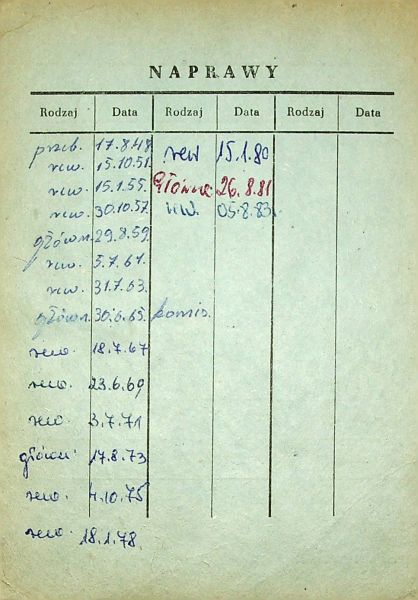 NAPRAWY
Rodzaj Data Rodzaj Data Rodzaj Data
przeb. 17.8.48 rew 15.1.80
rew. 15.10.51 Główna 26.8.81
rew. 15.1.55. rew. 05.8.83.
rew. 30.10.57
główn. 29.8.59
rew. 5.7.61.
rew. 31.7.63.
główn. 30.6.65. komis.
rew. 18.7.67
rew. 23.6.69
rew. 3.7.71
główn. 17.8.73
rew. 4.10.75
rew. 18.1.78.